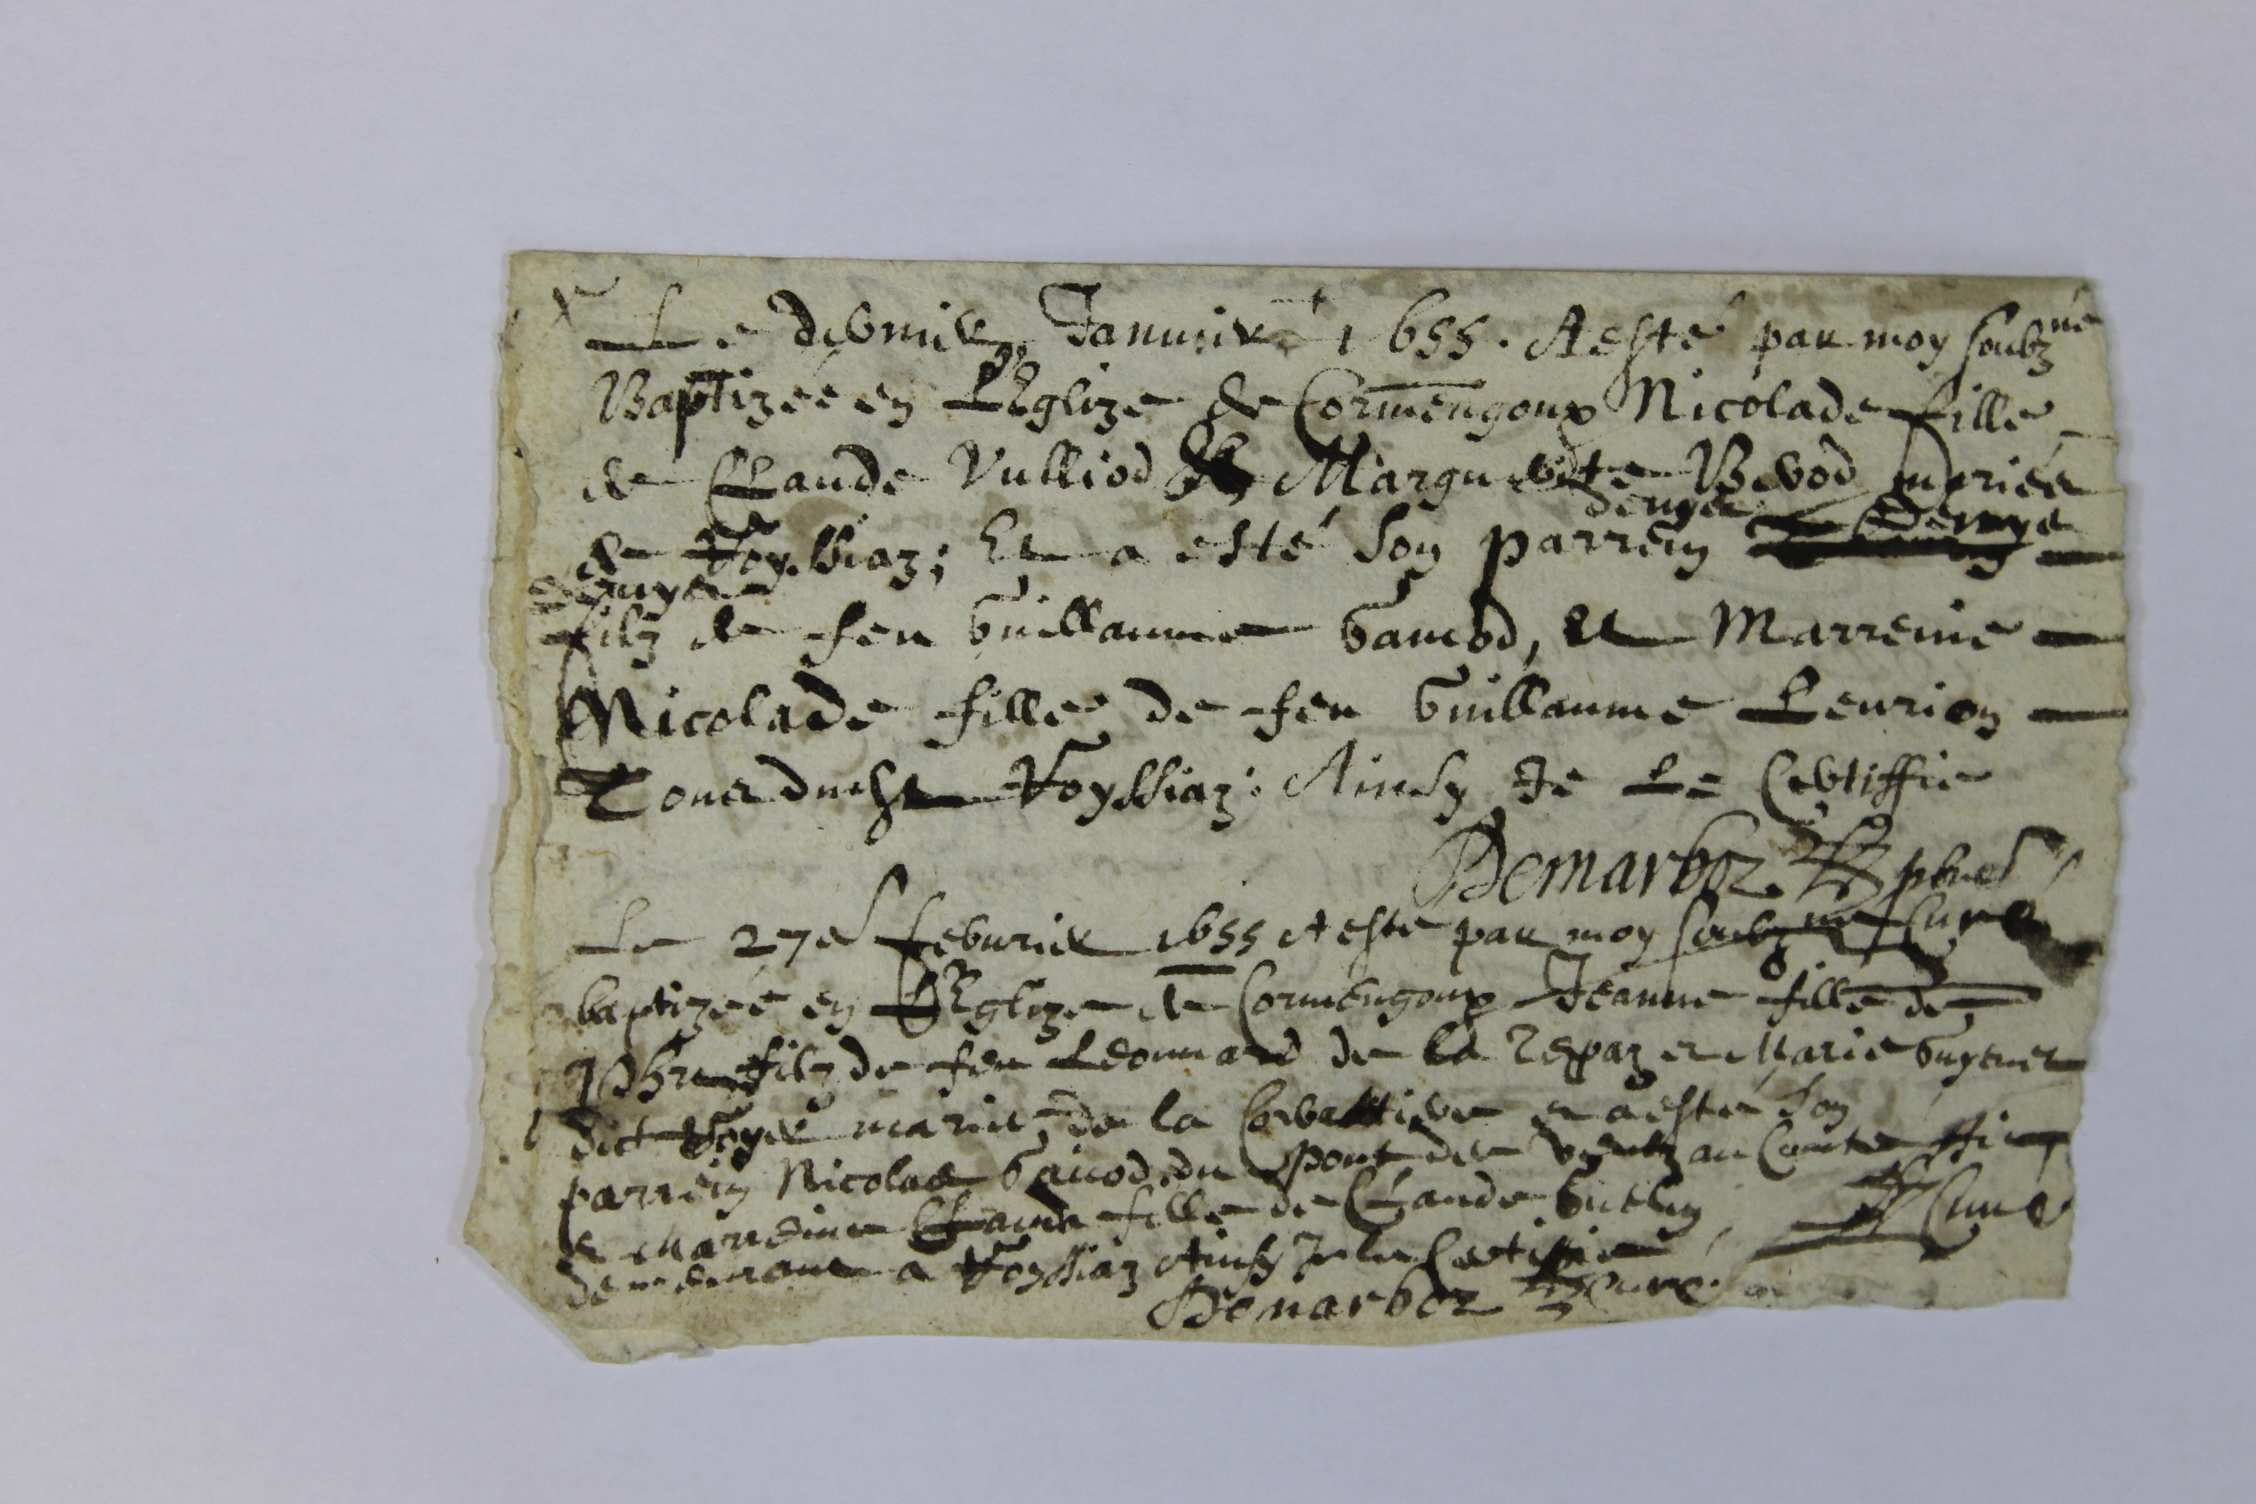 Le dernier Januier 1655. A esté par moy soubz né
Baptizéé en L'Eglize de Cormengoux Nicolade fille
de Claude Vulliod & Marguerite Berod mariés
denys
de Royssiaz; Et a esté son parrein
denys
filz de feu Guillaume Gauiod, et Marreine
Nicolade fille de feu Guillaume Leurion
Tous dudt Royssiaz: Ainsy Je Le Certiffie
Demarboz pbre
Le 27e feburier 1655 A esté par moy soubz né Curé
baptizéé en L'Eglize de Cormengoux Jeanne fille de
filz de feu Leonnard de la et Marie Guyenet
dict mariés de la et a esté son
parrein Nicolas Gauiod du pont des ventz au Comté
et Marreine Claude fille de Claude Curé
demeurant a Royssiaz Ainsy Je le Certiffie
Demarboz Curé